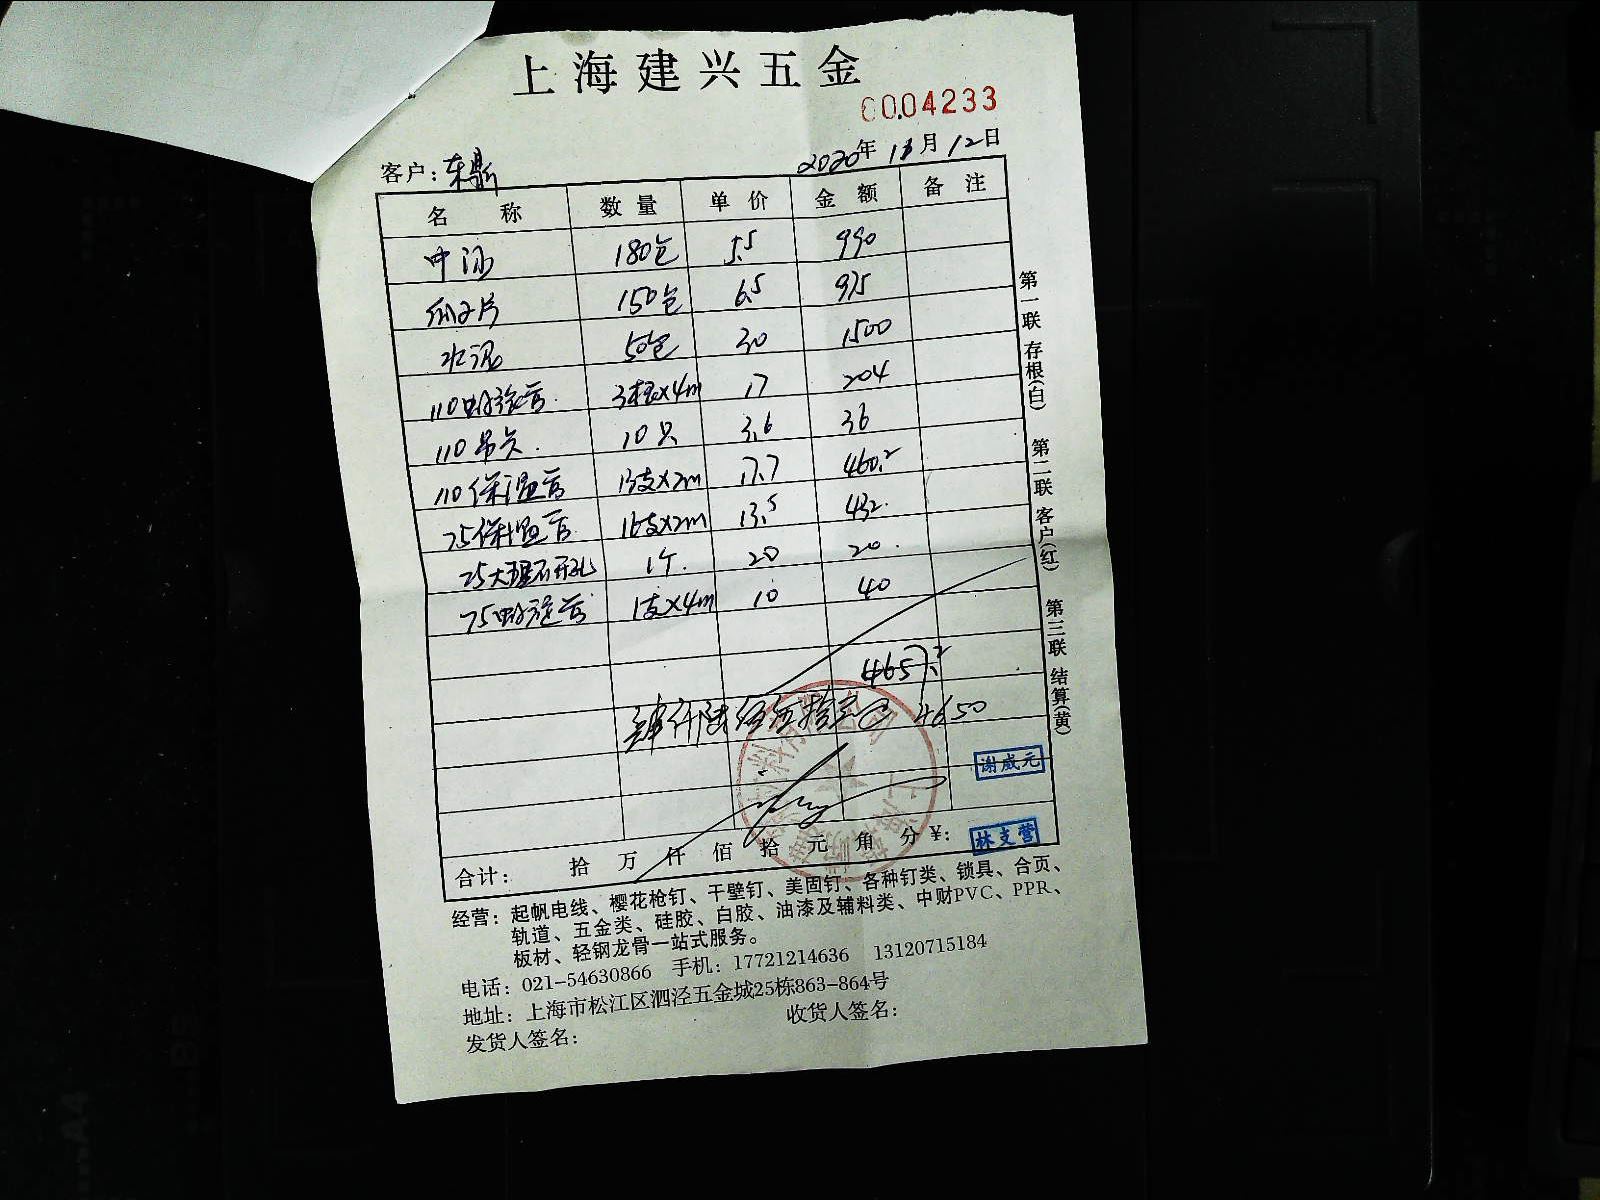 上海建兴五金
0004233
客户：东鼎 2020年11月12日
名 称 数 量 单 价 金 额 备 注
中沙 180包 5.5 990
瓜子片 150包 6.5 975
水泥 50包 30 1500
110螺旋管 3根×4m 17 204
110吊卡 10只 3.6 36
110保温管 13支×2m 17.7 460.2
75保温管 16支×2m 13.5 432
75大理石开孔 1个 20 20
75螺旋管 1支×4m 10 40
4657.2
肆仟陆佰伍拾元 4650
谢威元
林支营
合计： 拾 万 仟 佰 拾 元 角 分 ¥:
经营：起帆电线、樱花枪钉、干壁钉、美固钉、各种钉类、锁具、合页、
轨道、五金类、硅胶、白胶、油漆及辅料类、中财PVC、PPR、
板材、轻钢龙骨一站式服务。
电话：021-54630866 手机：17721214636 13120715184
地址：上海市松江区泗泾五金城25栋863-864号
发货人签名： 收货人签名：
第一联 存根(白) 第二联 客户(红) 第三联 结算(黄)